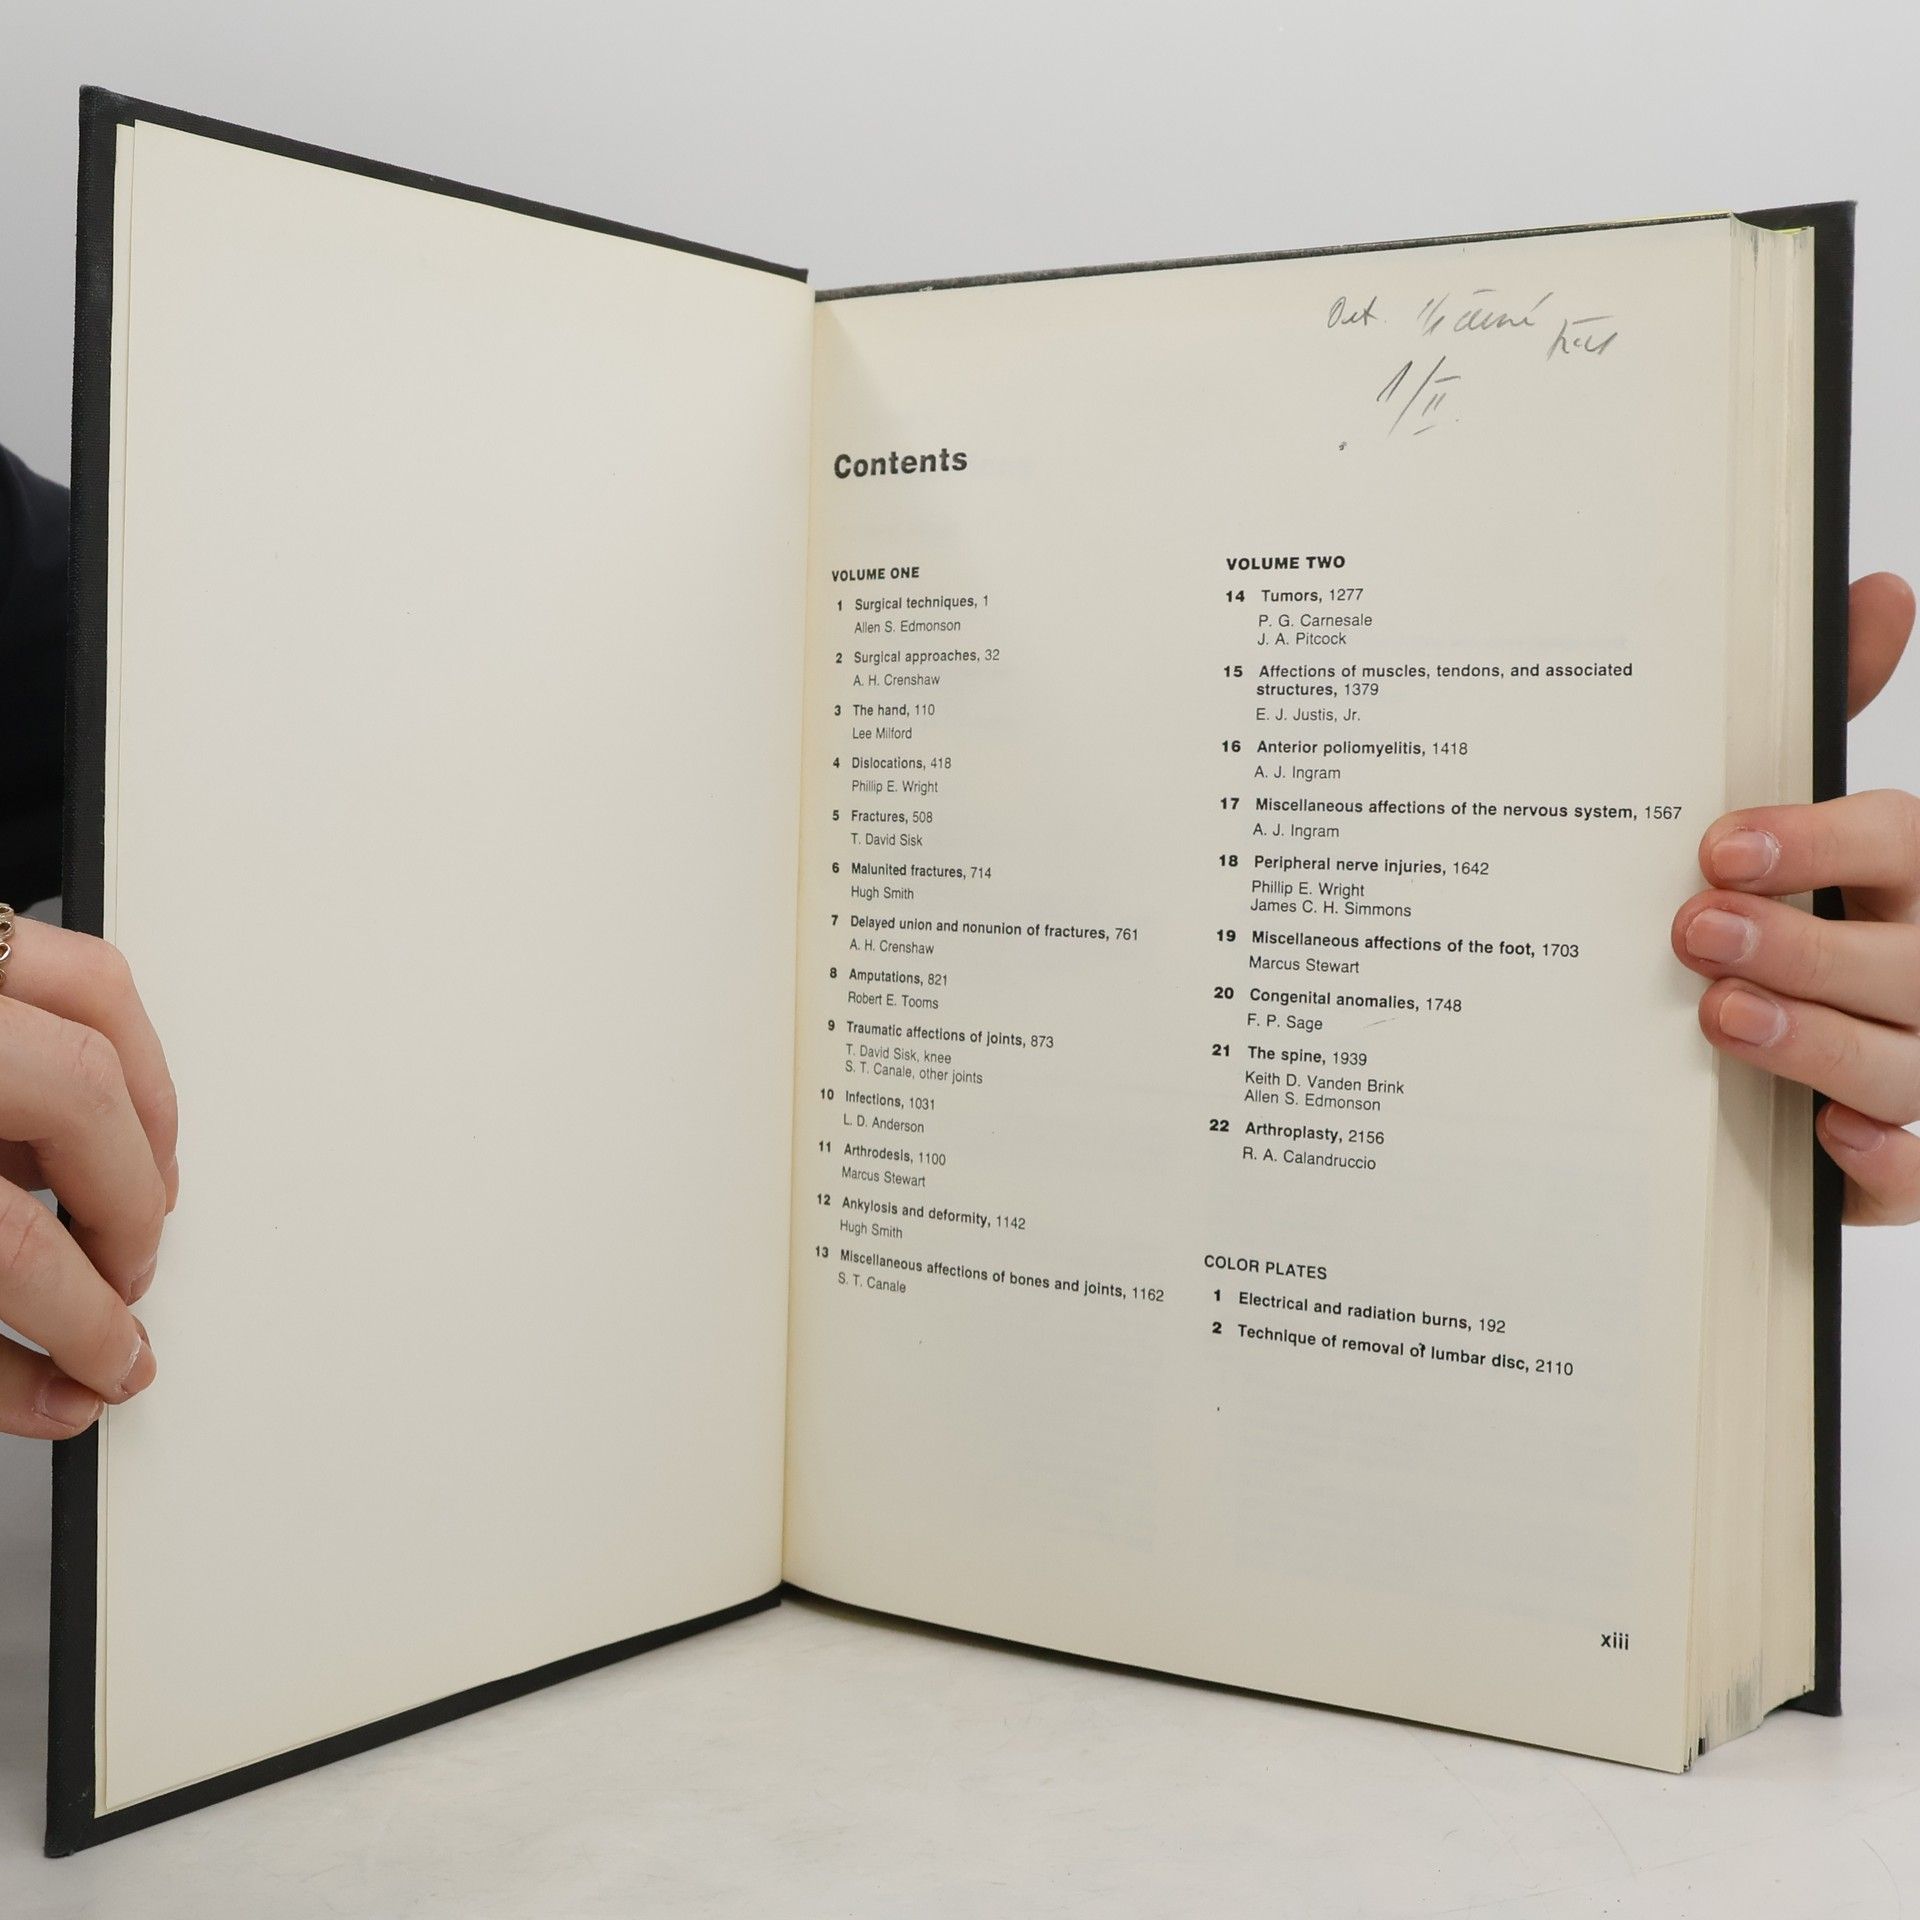 1/II
Contents
VOLUME ONE
1 Surgical techniques, 1
Allen S. Edmonson
2 Surgical approaches, 32
A. H. Crenshaw
3 The hand, 110
Lee Milford
4 Dislocations, 418
Phillip E. Wright
5 Fractures, 508
T. David Sisk
6 Malunited fractures, 714
Hugh Smith
7 Delayed union and nonunion of fractures, 761
A. H. Crenshaw
8 Amputations, 821
Robert E. Tooms
9 Traumatic affections of joints, 873
T. David Sisk, knee
S. T. Canale, other joints
10 Infections, 1031
L. D. Anderson
11 Arthrodesis, 1100
Marcus Stewart
12 Ankylosis and deformity, 1142
Hugh Smith
13 Miscellaneous affections of bones and joints, 1162
S. T. Canale
VOLUME TWO
14 Tumors, 1277
P. G. Carnesale
J. A. Pitcock
15 Affections of muscles, tendons, and associated
structures, 1379
E. J. Justis, Jr.
16 Anterior poliomyelitis, 1418
A. J. Ingram
17 Miscellaneous affections of the nervous system, 1567
A. J. Ingram
18 Peripheral nerve injuries, 1642
Phillip E. Wright
James C. H. Simmons
19 Miscellaneous affections of the foot, 1703
Marcus Stewart
20 Congenital anomalies, 1748
F. P. Sage
21 The spine, 1939
Keith D. Vanden Brink
Allen S. Edmonson
22 Arthroplasty, 2156
R. A. Calandruccio
COLOR PLATES
1 Electrical and radiation burns, 192
2 Technique of removal of lumbar disc, 2110
xiii